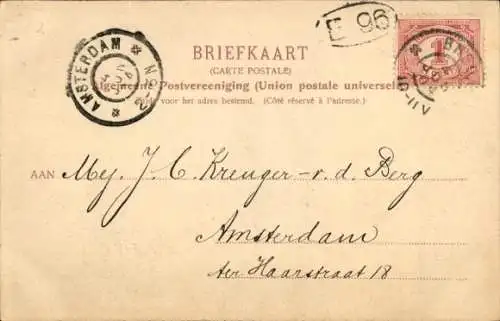 E 96
BRIEFKAART
(CARTE POSTALE)
Algemeene Postvereeniging (Union postale universelle)
Zijde voor het adres bestemd. (Côté réservé à l'adresse.)
AMSTERDAM
1
AAN Mej. J. C. Kreuger-v. d. Berg
Amsterdam
ter Haarstraat 18